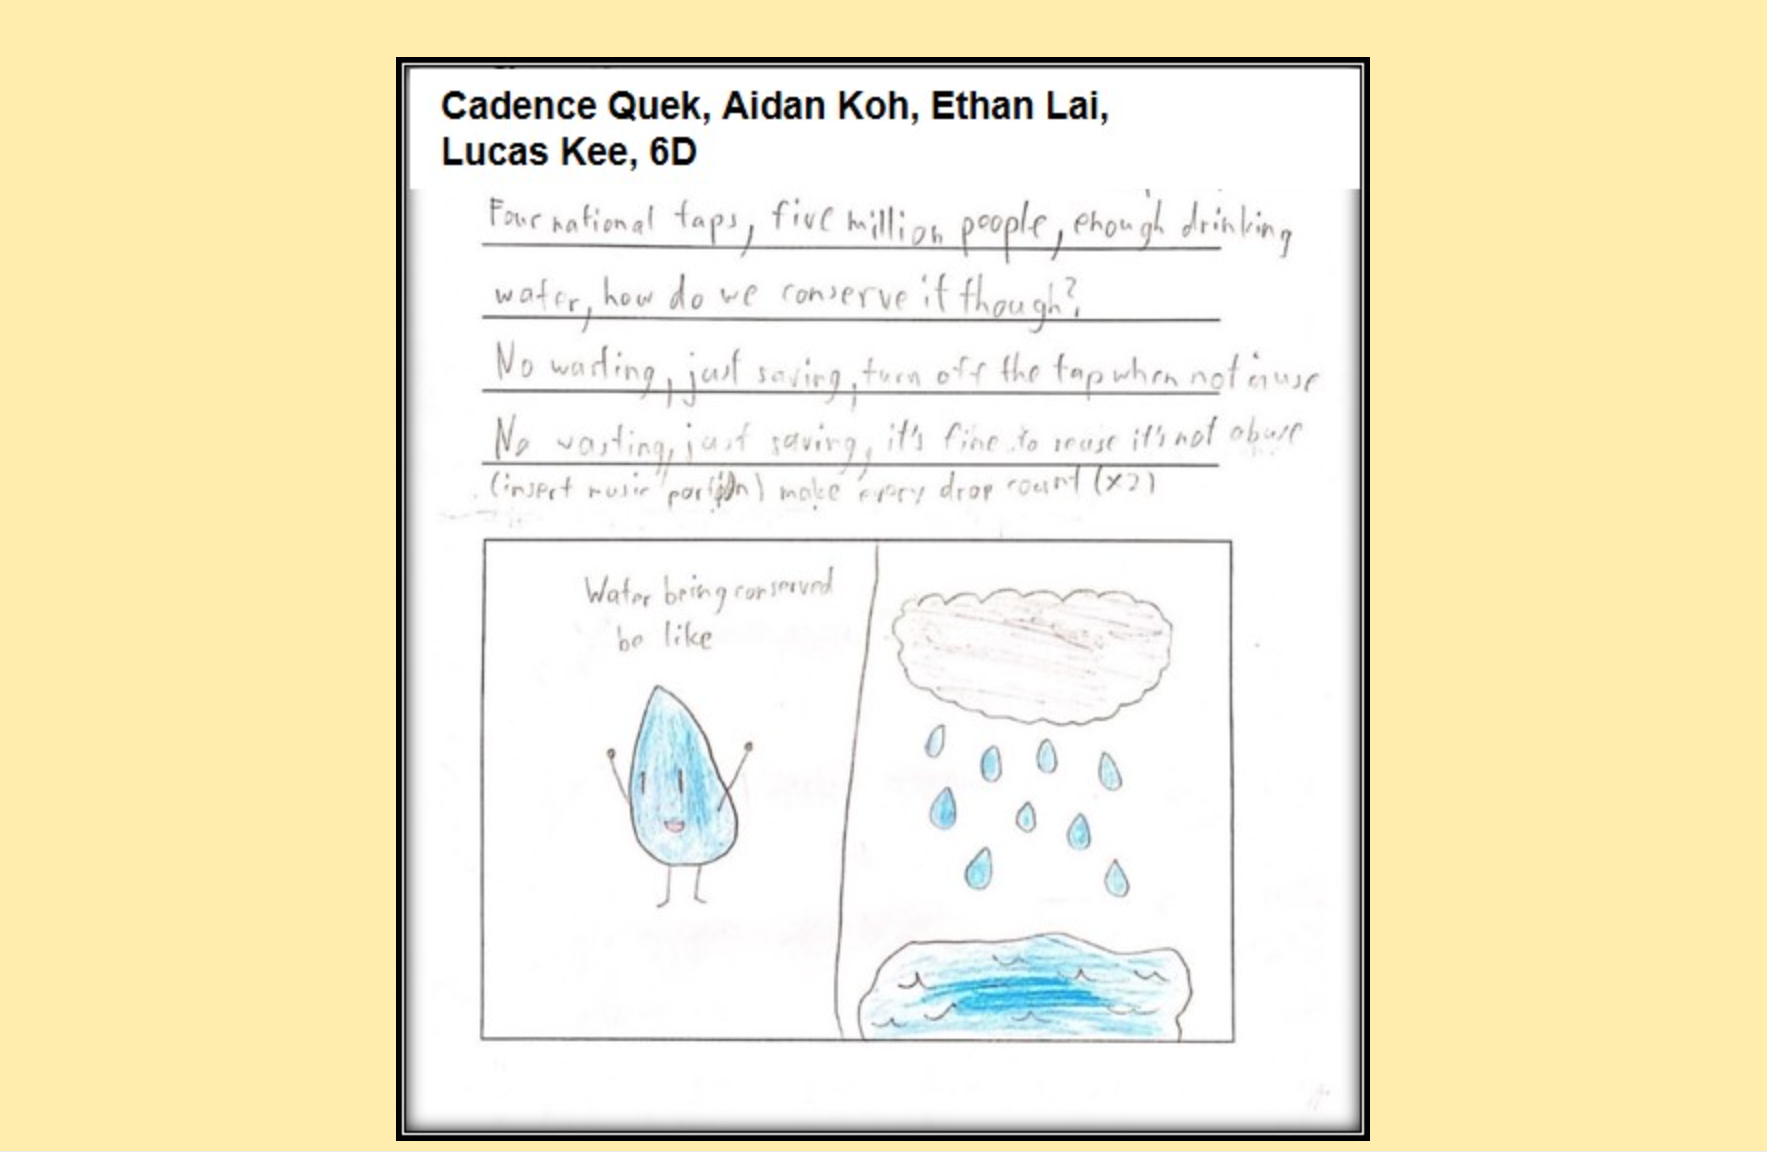 Cadence Quek, Aidan Koh, Ethan Lai,
Lucas Kee, 6D
Four national taps, five million people, enough drinking
water, how do we conserve it though?
No wasting, just saving, turn off the tap when not in use
No wasting, just saving, it's fine to reuse it's not abuse
(insert music portion) make every drop count (x2)
Water being conserved
be like